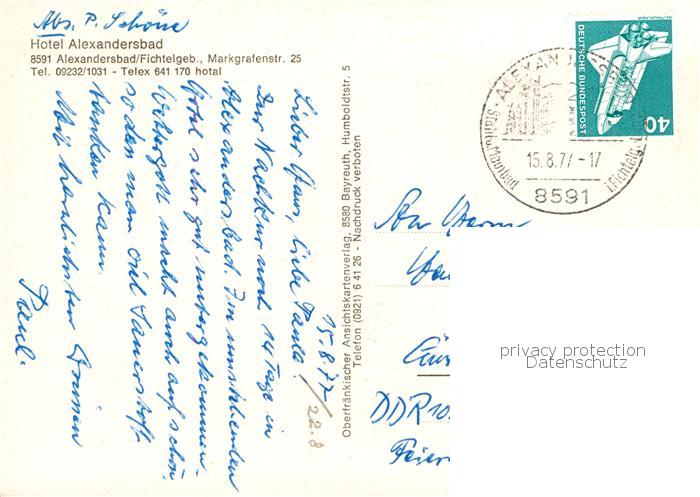 Abs. P. Schöne
Hotel Alexandersbad
8591 Alexandersbad/Fichtelgeb., Markgrafenstr. 25
Tel. 09232/1031 - Telex 641 170 hotal
15.8.77
/22.8
Lieber Hans, liebe Paula!
Zur Nachkur noch 14 Tage in
Alexandersbad. Im umstehenden
Hotel sehr gut untergekommen.
Wettergott macht auch auf schön,
so dass man viel Sauerstoff
tanken kann.
Mit herzlichsten Grüssen
Paul.
Oberfränkischer Ansichtskartenverlag, 8580 Bayreuth, Humboldtstr. 5
Telefon (0921) 6 41 26 - Nachdruck verboten
DEUTSCHE BUNDESPOST
40
WELTRAUMLABOR
15.8.77-17
8591
An Herrn
DDR 10
privacy protection
Datenschutz